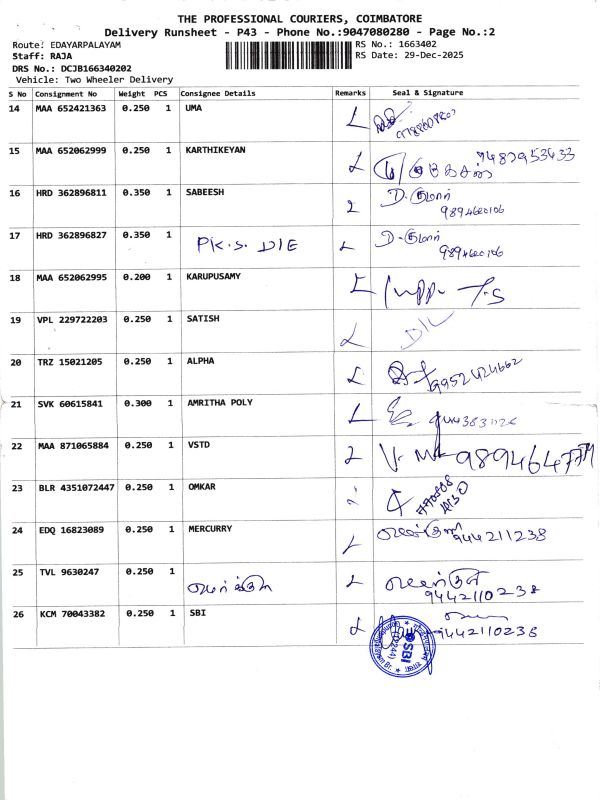 THE PROFESSIONAL COURIERS, COIMBATORE
Delivery Runsheet - P43 - Phone No.:9047080280 - Page No.:2
Route: EDAYARPALAYAM RS No.: 1663402
Staff: RAJA RS Date: 29-Dec-2025
DRS No.: DCJB166340202
Vehicle: Two Wheeler Delivery
S No Consignment No Weight PCS Consignee Details Remarks Seal & Signature
14 MAA 652421363 0.250 1 UMA
15 MAA 652062999 0.250 1 KARTHIKEYAN
16 HRD 362896811 0.350 1 SABEESH D. குமார்
9894620106
17 HRD 362896827 0.350 1 PK.S. DIE D. குமார்
9894620106
18 MAA 652062995 0.200 1 KARUPUSAMY
19 VPL 229722203 0.250 1 SATISH D/L
20 TRZ 15021205 0.250 1 ALPHA 9952424662
21 SVK 60615841 0.300 1 AMRITHA POLY
22 MAA 871065884 0.250 1 VSTD
23 BLR 4351072447 0.250 1 OMKAR
24 EDQ 16823089 0.250 1 MERCURRY 9442110238
25 TVL 9630247 0.250 1
9442110238
26 KCM 70043382 0.250 1 SBI
9442110238
SBI